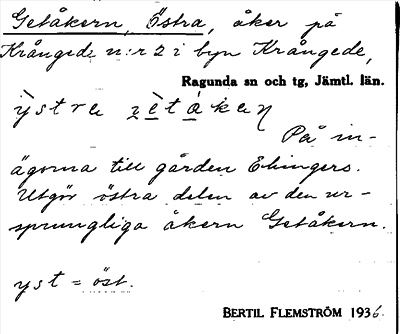 Getåkern, Östra, åker på
Krångede n:r 2 i byn Krångede,
Ragunda sn och tg, Jämtl. län.
ỳstra
På in-
ägorna till gården Ehingers.
Utgör östra delen av den ur-
sprungliga åkern Getåkern.
yst = öst.
BERTIL FLEMSTRÖM 1936.